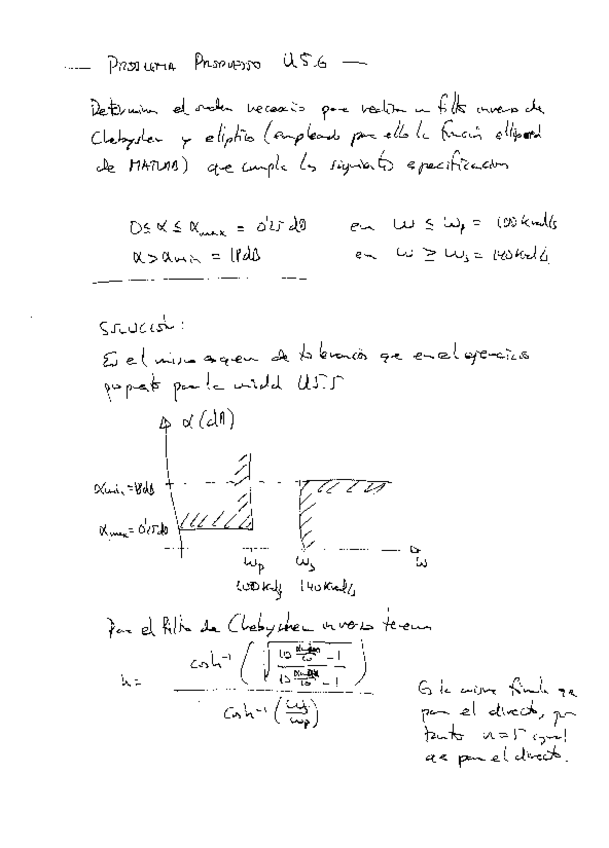 — PROBLEMA PROPUESTO U5.6 —
Determinar el orden necesario para realizar un filtro inverso de
Chebyshev y elíptico (empleando para ello la función ellipord
de MATLAB) que cumpla las siguientes especificaciones
0 ≤ α ≤ αmax = 0'25 dB en ω ≤ ωp = 100 Krad/s
α > αmin = 18 dB en ω ≥ ωs = 140 Krad/s
SOLUCIÓN:
Es el mismo esquema de tolerancias que en el ejercicio
propuesto para la unidad U5.5
α (dB)
αmin = 18 dB
αmax = 0'25 dB
ωp ωs ω
100 Krad/s 140 Krad/s
Para el filtro de Chebyshev inverso tenemos
n = cosh⁻¹ ( √ 10^(αmin/10) - 1 / 10^(αmax/10) - 1 ) / cosh⁻¹ (ωs/ωp)
Es la misma fórmula que
para el directo, por
tanto n = 5 igual
que para el directo.